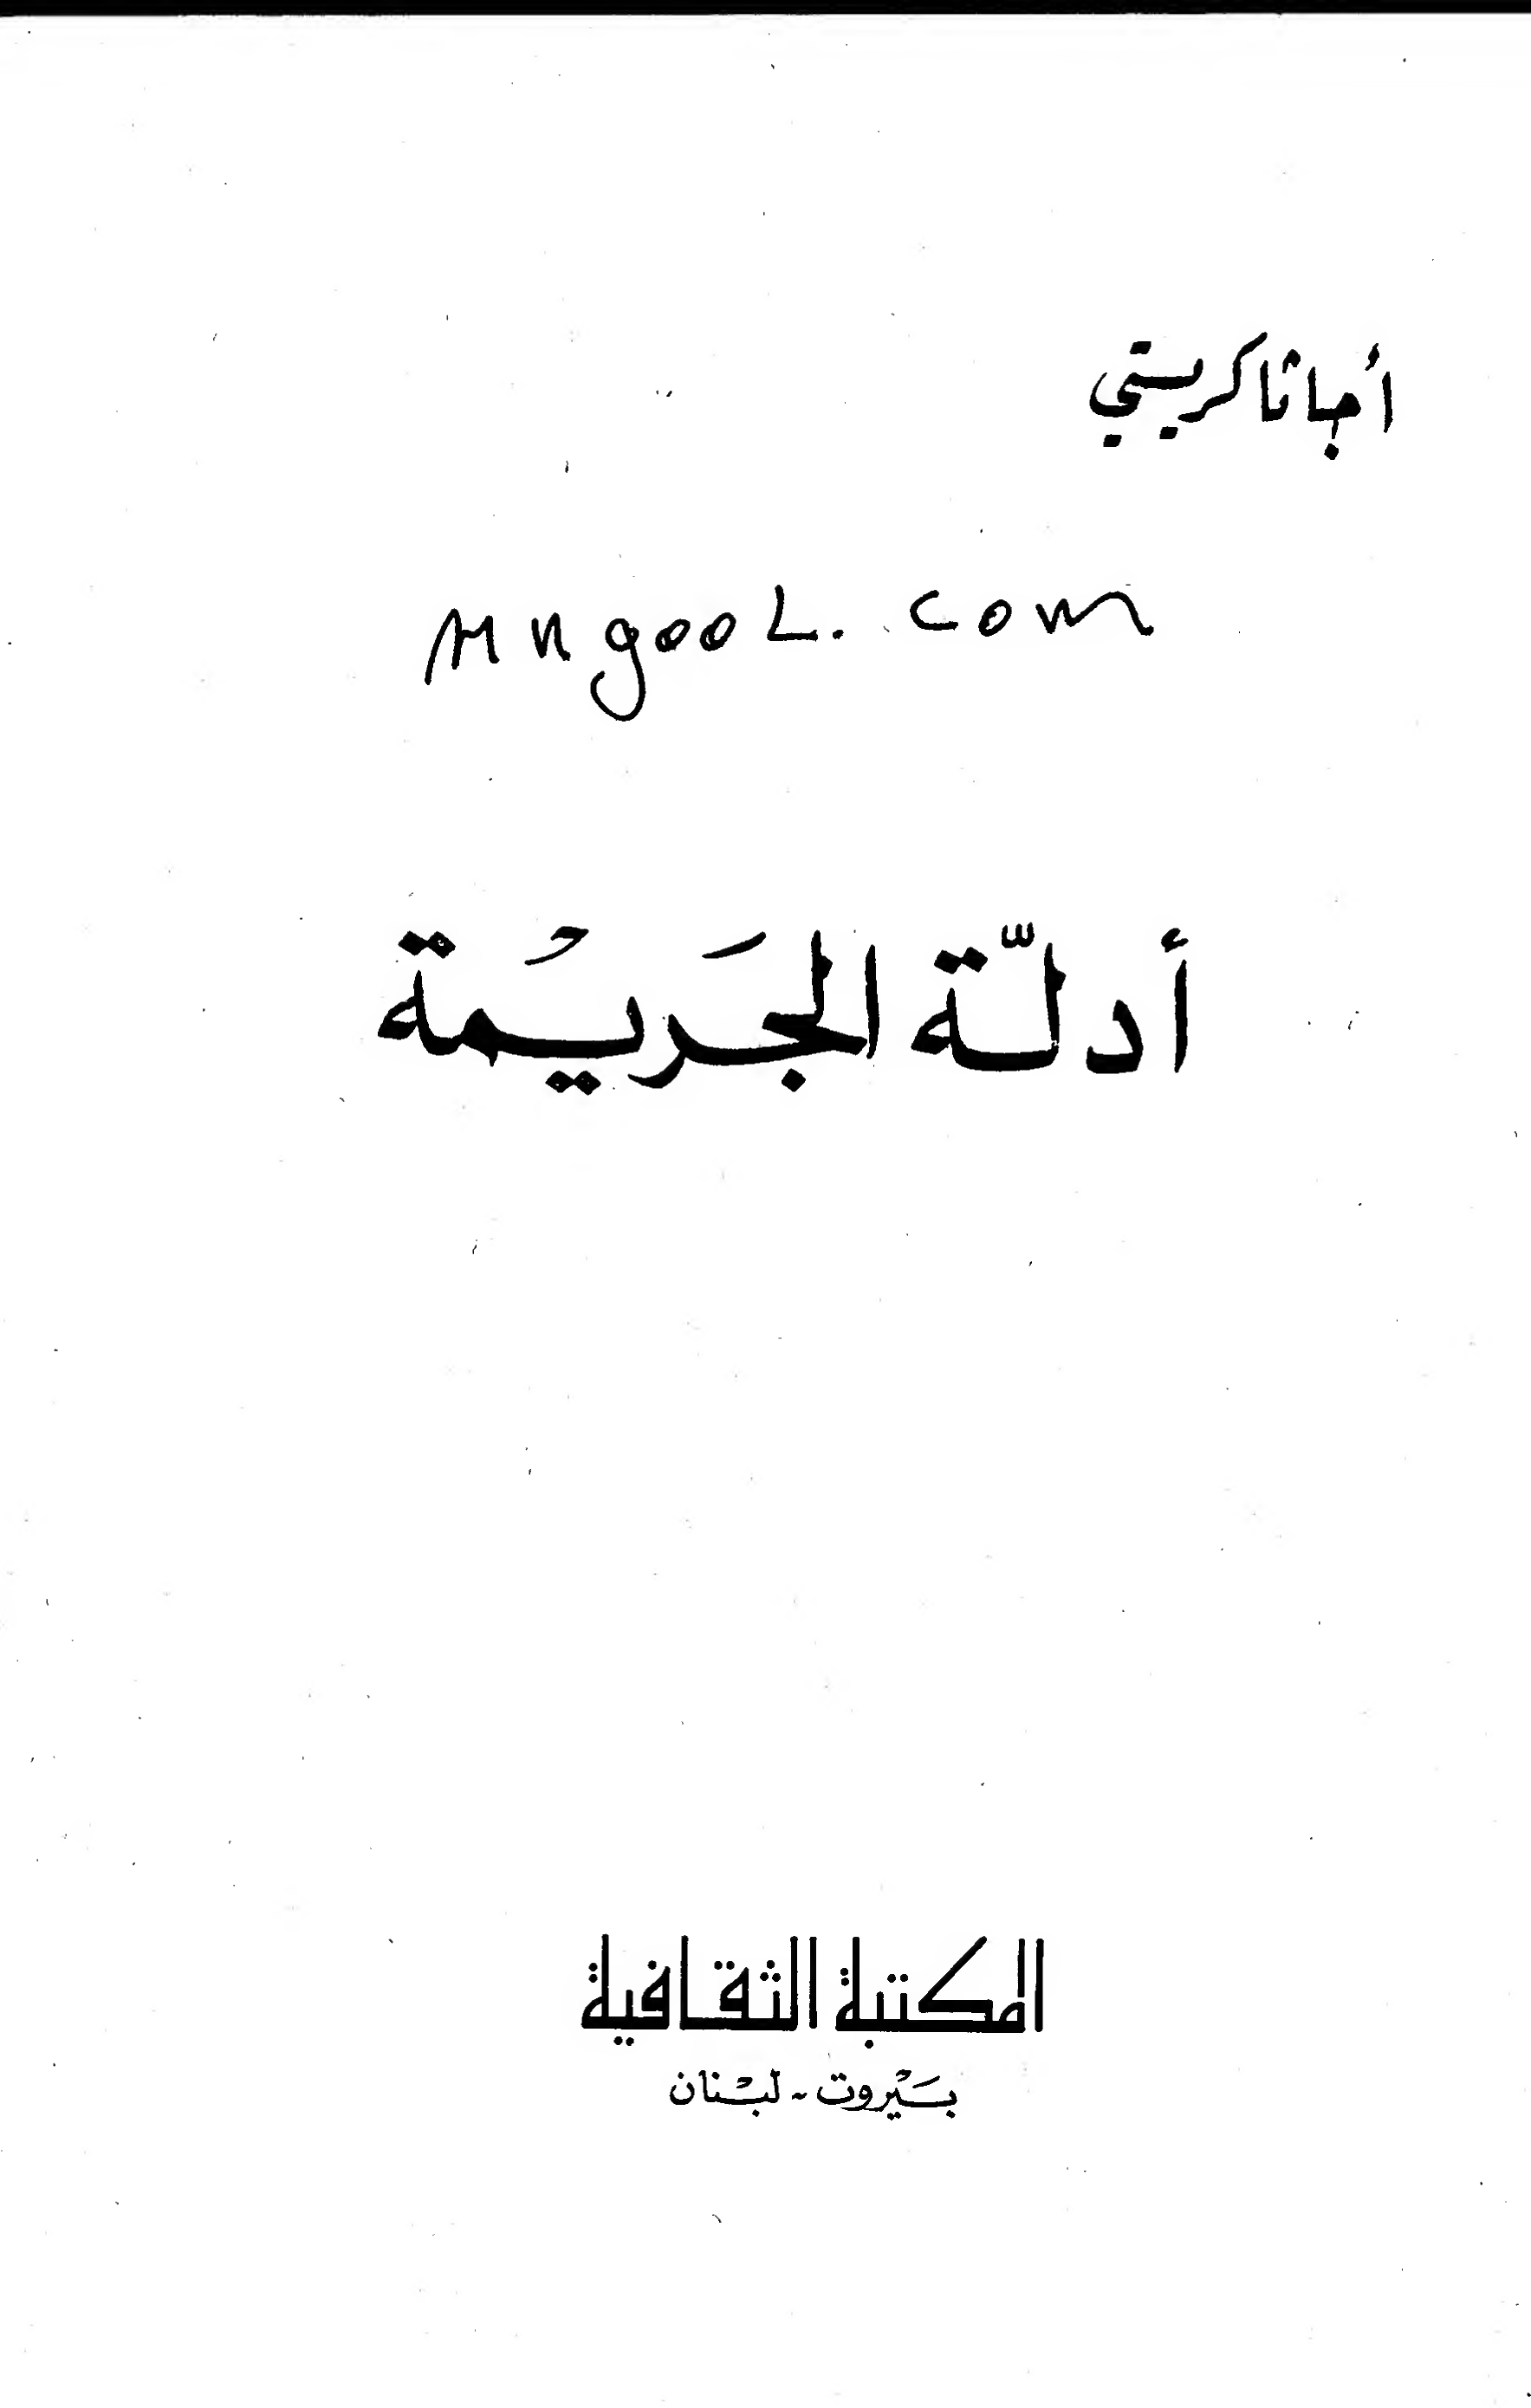 أجاثا كريستي
Mngool.com
أدلّة الجَريمْة
المكتبة الثقافية
بَيْروت - لبْنان